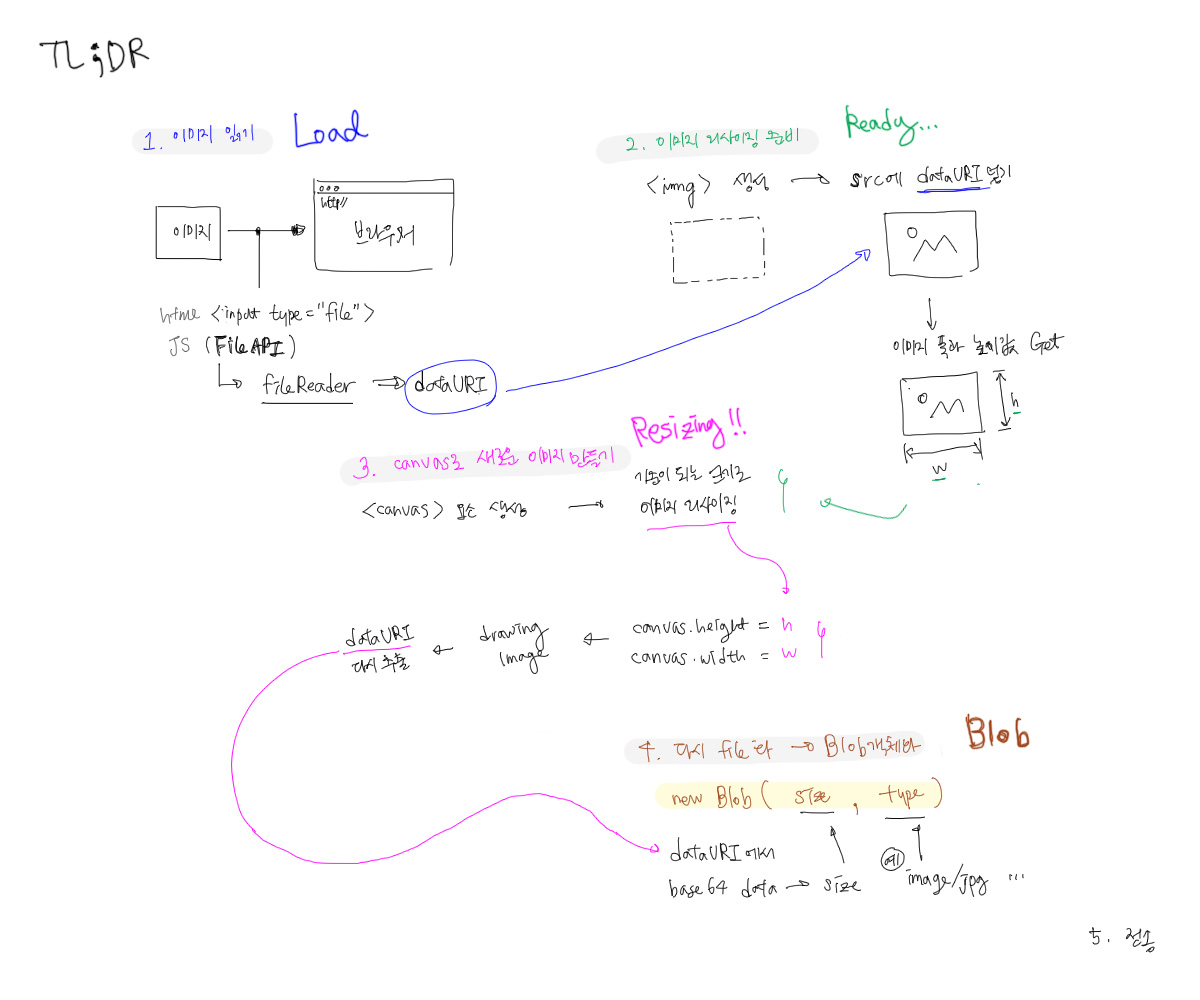 TL;DR
1. 이미지 읽기 Load
이미지
http//
브라우저
html <input type="file">
JS (File API)
fileReader → dataURI
2. 이미지 리사이징 준비 Ready...
<img> 생성 → src에 dataURI 넣기
이미지 폭과 높이값 Get
h
w
3. canvas로 새로운 이미지 만들기 Resizing!!
<canvas> 요소 생성 → 기준이 되는 크기로
이미지 리사이징
canvas.height = h
canvas.width = w
drawing
image
dataURI
다시 추출
4. 다시 file화 → Blob객체화 Blob
new Blob ( size , type )
dataURI에서
base64 data → size
예) image/jpg ...
5. 전송